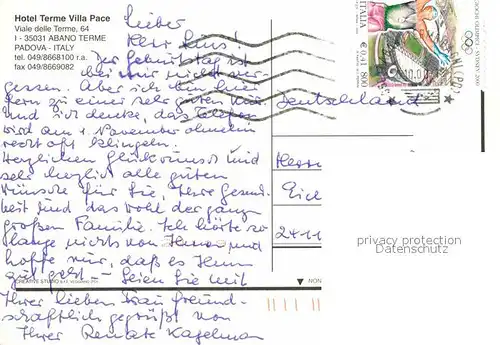 Hotel Terme Villa Pace
Viale delle Terme, 64
I - 35031 ABANO TERME
PADOVA - ITALY
tel. 049/8668100 r.a.
fax 049/8669082
Lieber
Herr
Der Geburtstag ist
bei mir nicht ver-
gessen. Aber ich bin hier
zu einer sehr guten Kur
und ich denke, das Telefon
wird am 1. November ohnehin
recht oft klingeln.
Herzlichen Glückwunsch und
sehr herzlich alle guten
Wünsche für Sie, Ihre Gesund-
heit und das Wohl der ganzen
großen Familie. Ich hörte so
lange nichts von Ihnen und
hoffe nur, daß es Ihnen
gut geht – Seien Sie mit
Ihrer lieben Frau freund-
schaftlich gegrüßt von
Ihrer Renate Kagelmann
Deutschland
Herrn
Eich
2411
ITALIA
€ 0,41 800
privacy protection
Datenschutz
CREATIVE STUDIO
NON